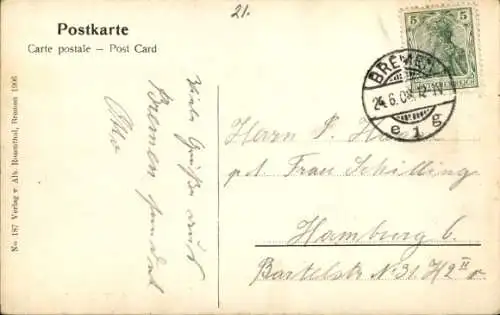 21.
Postkarte
Carte postale – Post Card
5 5
DEUTSCHES REICH
BREMEN
24.6.08. 12-1 N
e 1 g
No 187 Verlag v. Alb. Rosenthal, Bremen 1906
Viele Grüße aus
Bremen sendet
Otto
Herrn P.
pt. Frau Schilling
Hamburg 6.
Bartelstr No 31. H 2 II